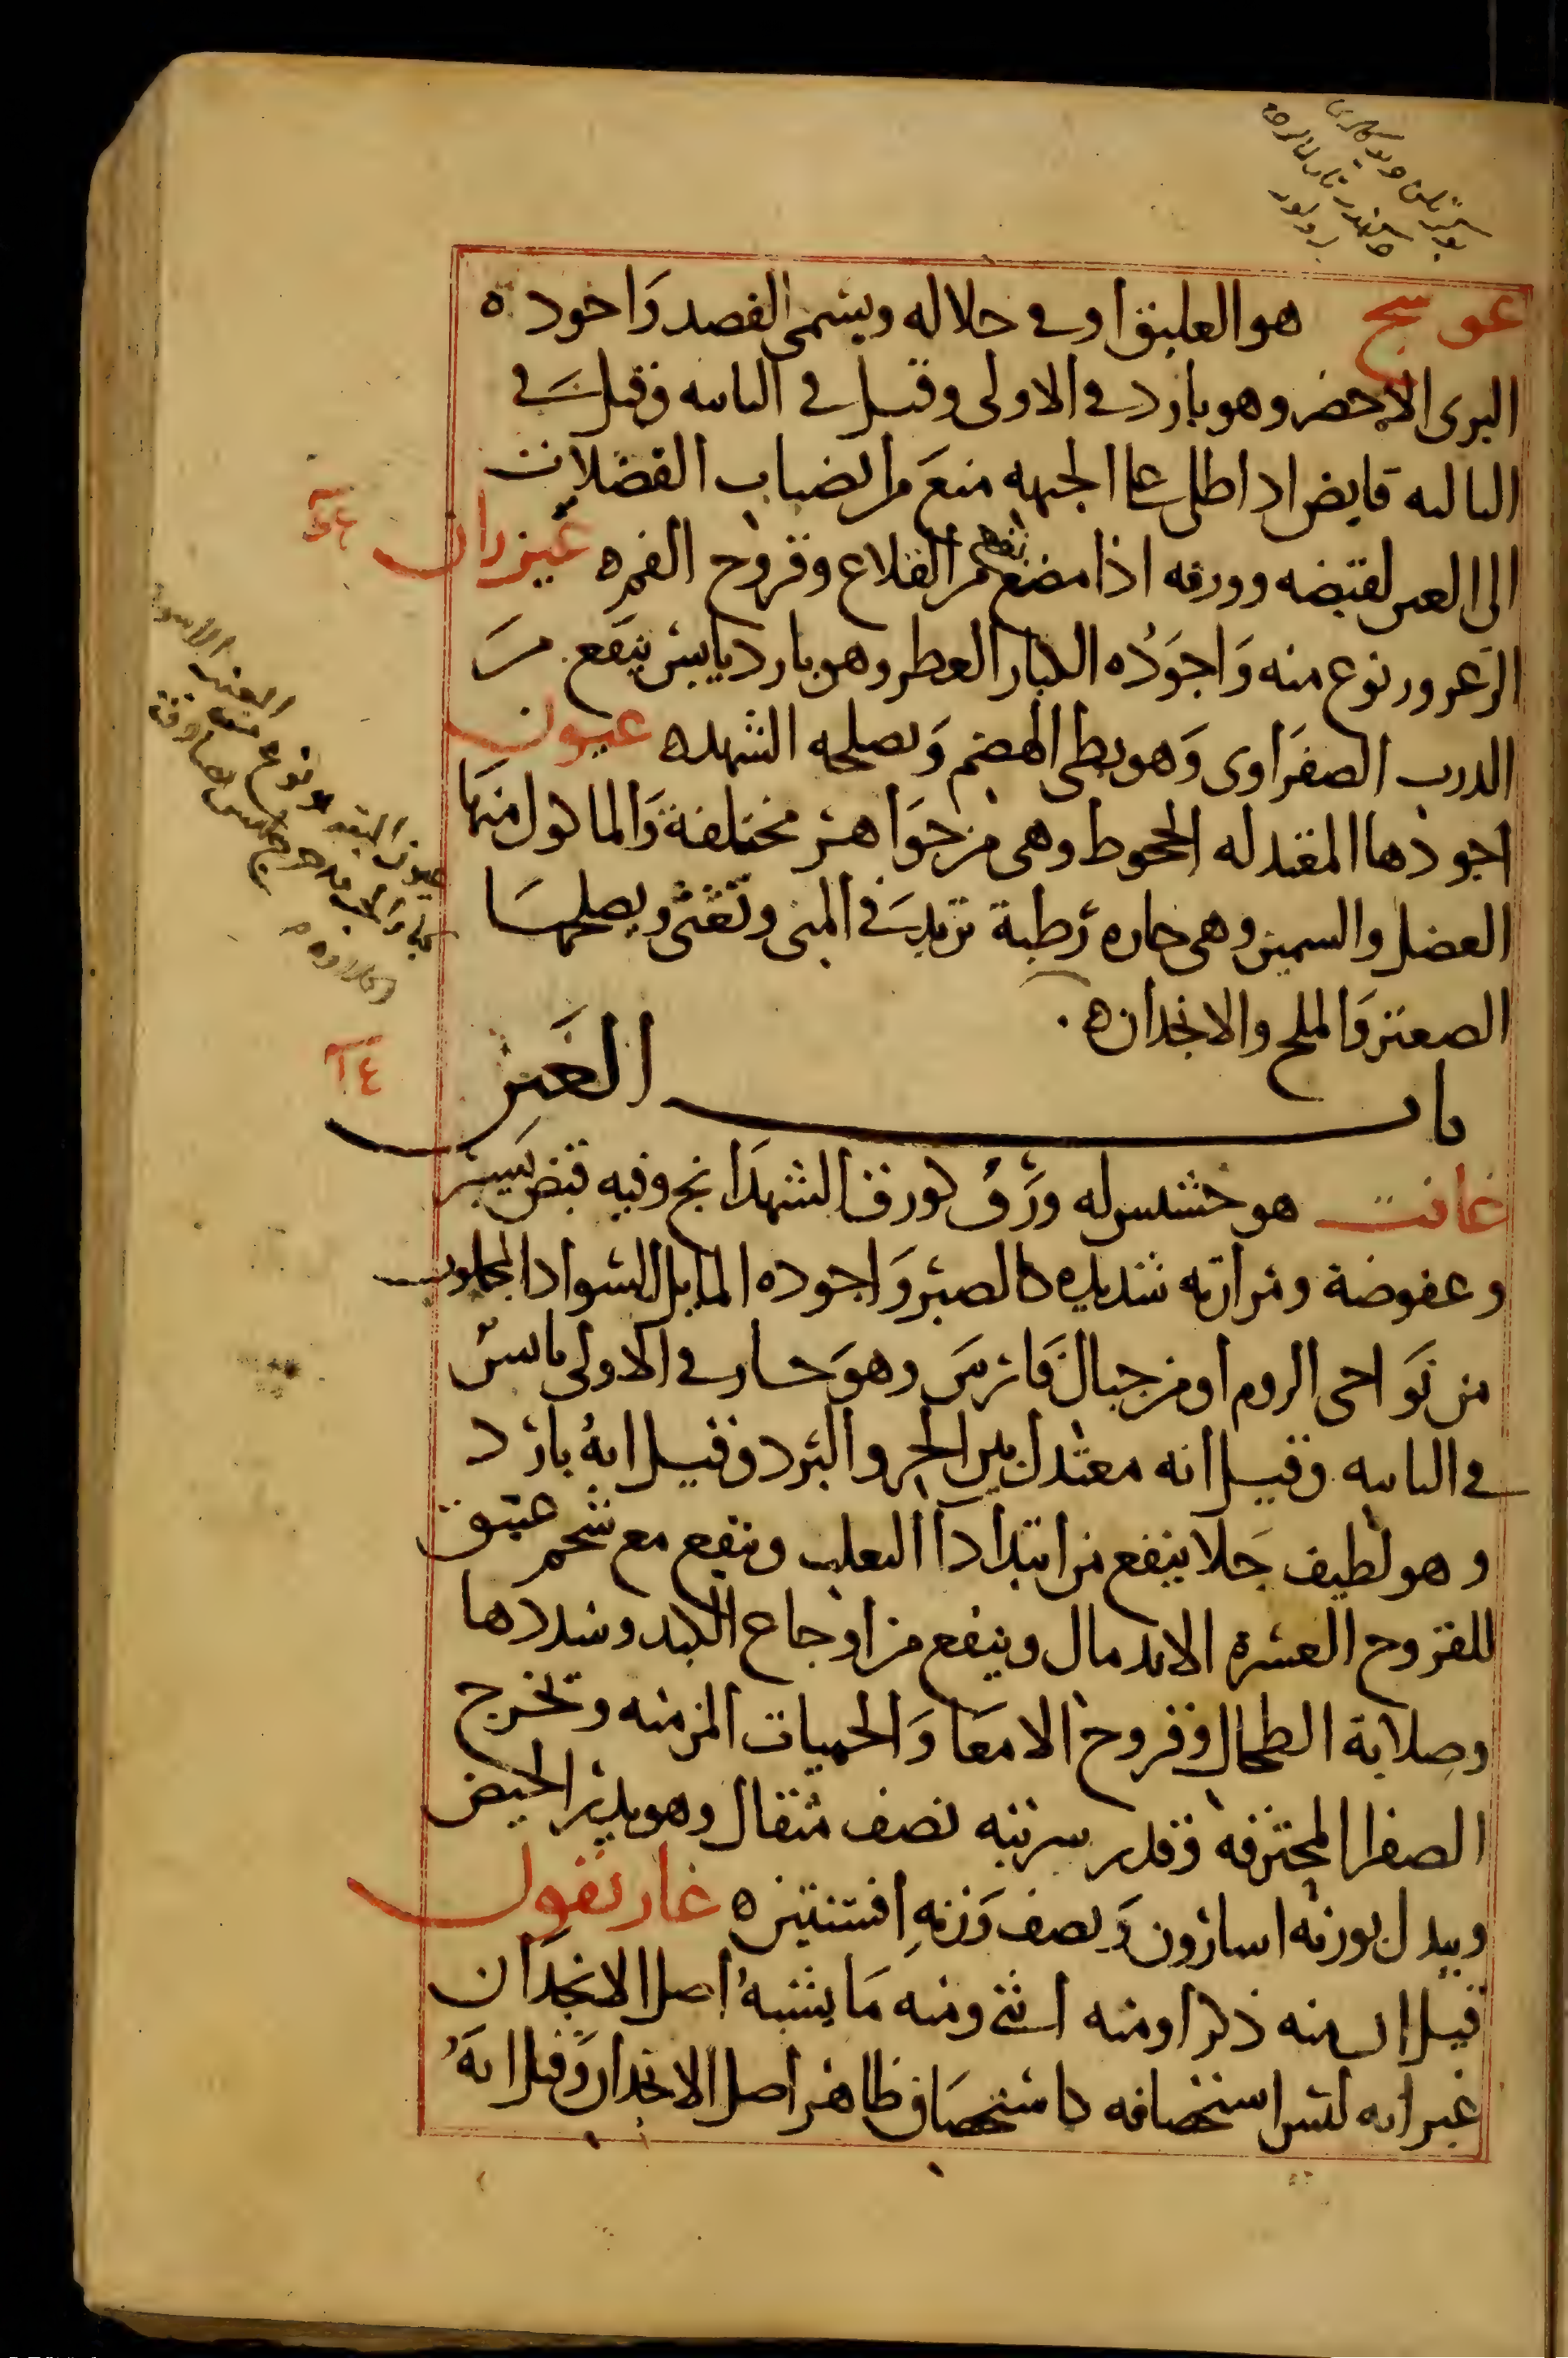 عوسج هو العليق او في حلاله ويسمى القصد واجوده
البرى الاخضر وهو بارد في الاولى وقيل في الثانيه وقيل في
الثالثه قابض اذا طلى على الجبهه منع من انصباب الفضلات
الى العين لقبضه وورقه اذا مضغ نفع من القلاع وقروح الفم ه عيزران
الزعرور نوع منه واجوده الكبار العطر وهو بارد يابس ينفع من
الدرب الصفراوى وهو بطى الهضم ويصلحه الشهد ه عيون
اجودها المقتدله الجحوظ وهى من جواهر مختلفة والماكول منها
العضل والسمين وهى حاره رطبة تزيد في المنى وتغثى ويصلحها
الصعتر والملح والانجدان ه
باب الغين
غافت هو خشيش له ورق كورق الشهدانج وفيه قبض يسير
وعفوصة ومرارته شديده كالصبر واجوده المايل للسواد المجلوب
من نواحى الروم او من جبال فارس وهو حار في الاولى يابس
في الثانيه وقيل انه معتدل بين الحر والبرد وقيل انه بارد
وهو لطيف جلا ينفع من ابتدا دا الثعلب وينفع مع شحم عتيق
للقروح العسره الاندمال وينفع من اوجاع الكبد وسددها
وصلابة الطحال وقروح الامعا والحميات المزمنه ويخرج
الصفرا المحترقه وقدر شربته نصف مثقال وهو يدر الحيض
ويبدل بوزنه اسارون ونصف وزنه افسنتين ه غاريقون
قيل ان منه ذكرا ومنه انثى ومنه ما يشبه اصل الانجدان
غير انه ليس استحصافه كاستحصاف ظاهر اصل الانجدان وقيل انه